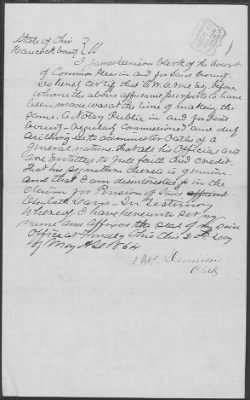 State of Ohio } SS
Hancock County
I James Denison Clerk of the Court
of Common Pleas in and for said County
do hereby certify that before
whom the above affidavit purports to have
been made was at the time of making the
same a Notary Public in and for said
County duly Commissioned and duly
authorised to administer Oaths of a
general nature that all his Official acts
are entitled to full faith and credit.
that his signature thereto is genuine
and that I am disinterested in the
claim for Pension of said
Elizabeth Davis. In Testimony
Whereof I have hereunto set my
name and affixed the seal of my said
Office at Findley Ohio this day
of May AD 1864
Denison
Clerk